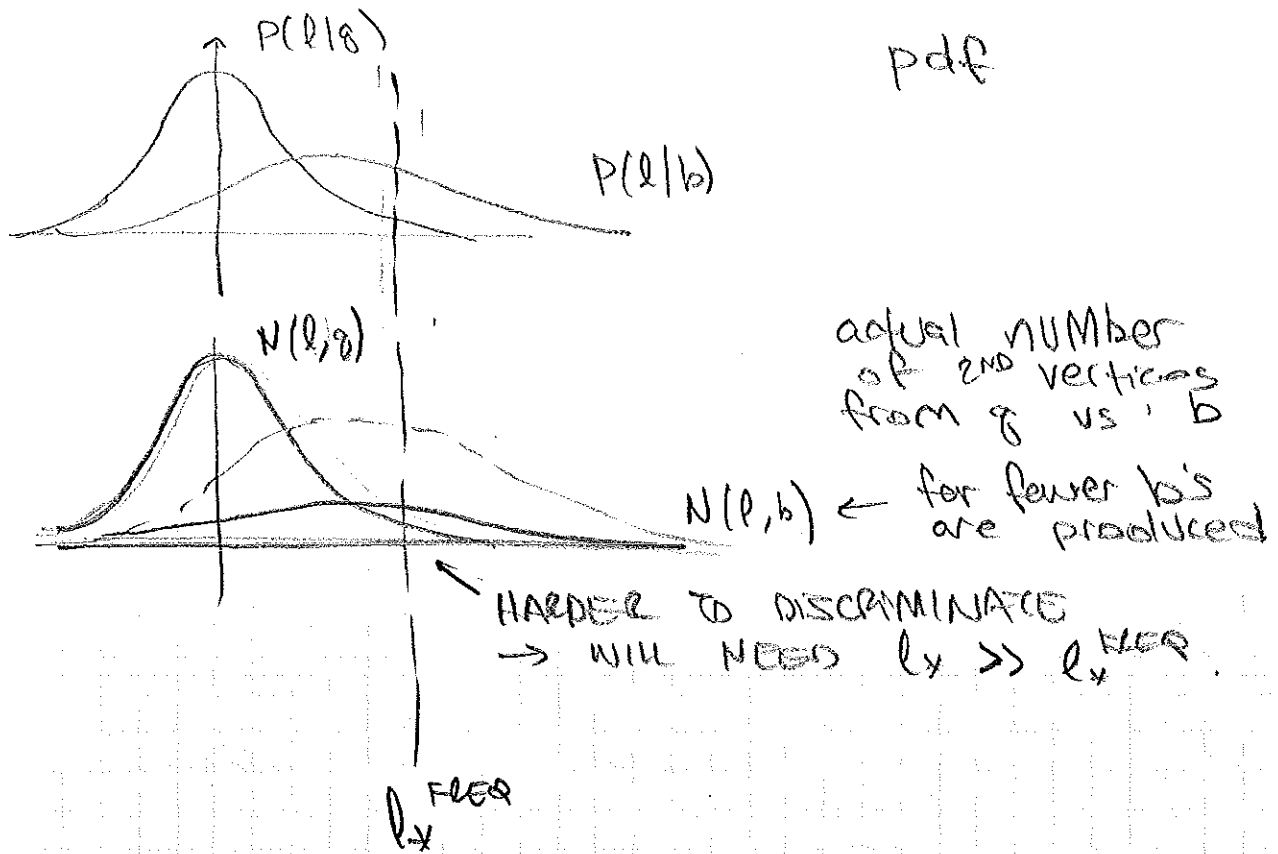 P(l|g)
pdf
P(l|b)
N(l,g)
actual number
of 2ND vertices
from g vs. b
N(l,b) ← for fewer b's
are produced
HARDER TO DISCRIMINATE
→ WILL NEED l* >> l*^FREQ.
l*^FREQ